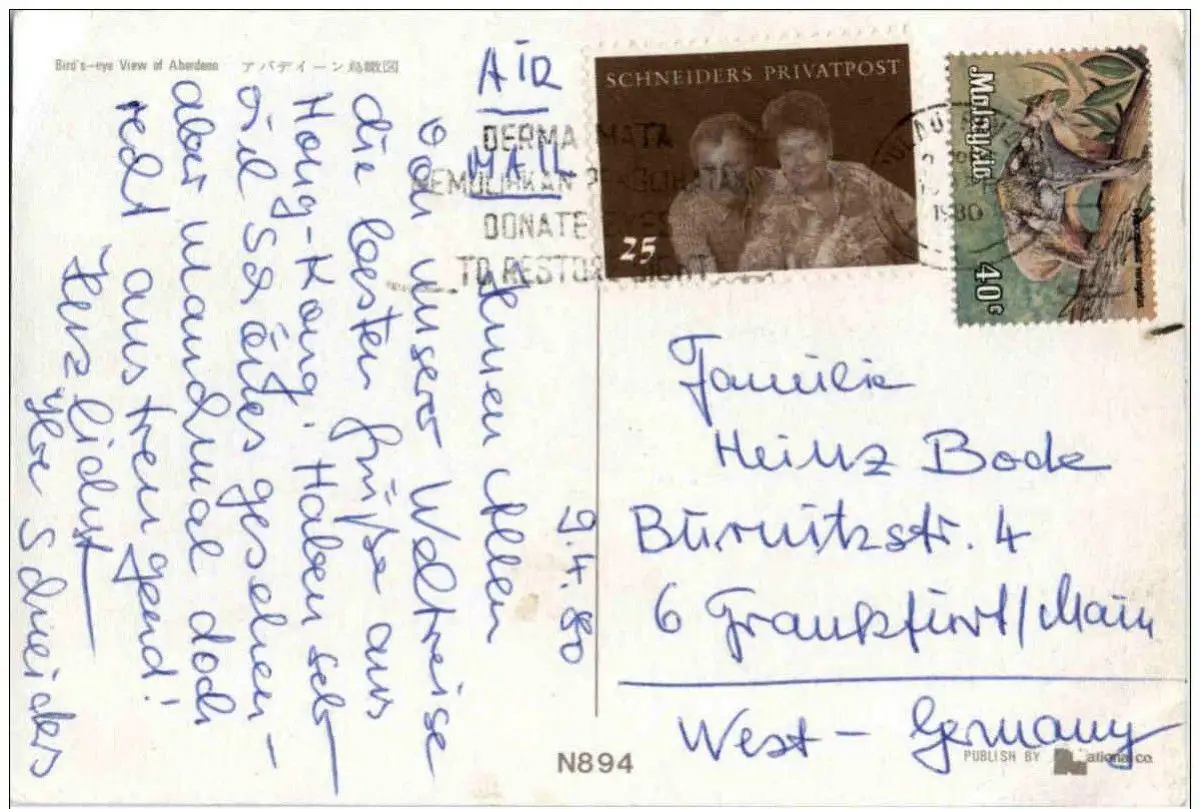 Bird's-eye View of Aberdeen アバディーン鳥瞰図
AIR
MAIL
9.4.80
Ihnen Allen
von unserer Weltreise
die besten Grüße aus
Hong-Kong. Haben sehr
viel Schönes gesehen -
aber manchmal doch
recht anstrengend!
Herzlichst
Ihre Schneiders
DERMA MATA
DONATE EYES
TO RESTORE SIGHT
SCHNEIDERS PRIVATPOST
25
1980
Malaysia
40c
Familie
Heinz Bode
Burnitzstr. 4
6 Frankfurt/Main
West - Germany
N894
PUBLISH BY National co.